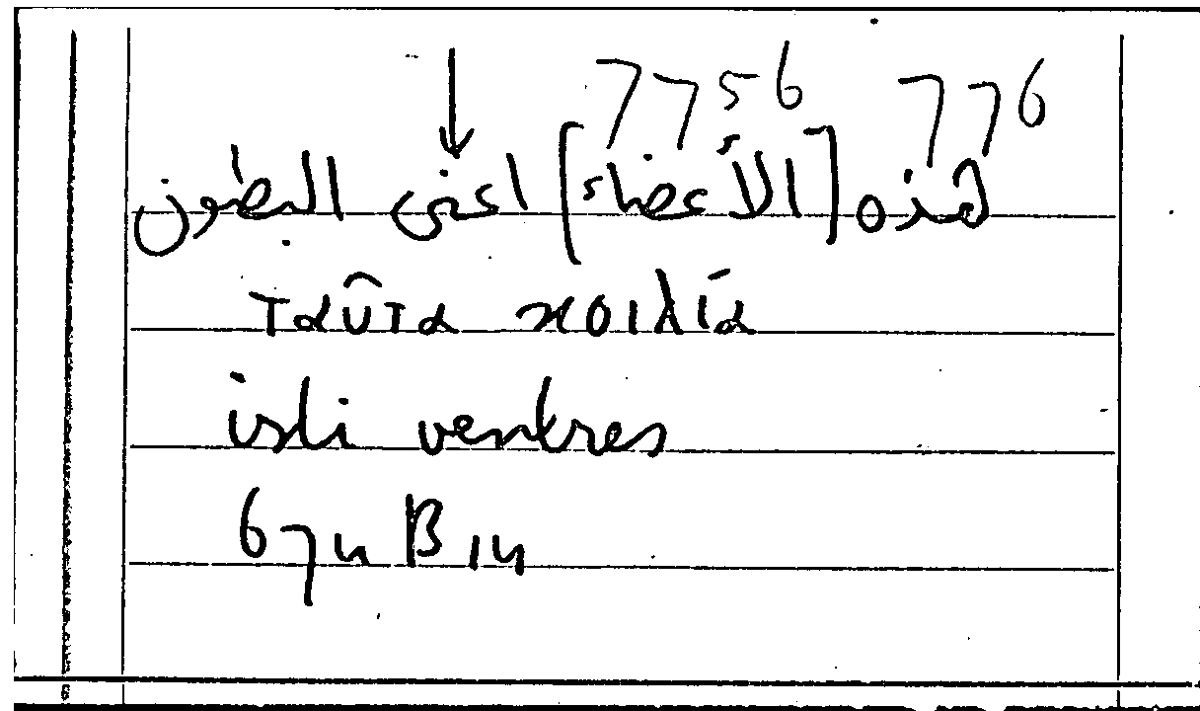 7756 776
هذه [الأعضاء] اعنى البطون
ταῦτα κοιλία
isti ventres
674 B 14